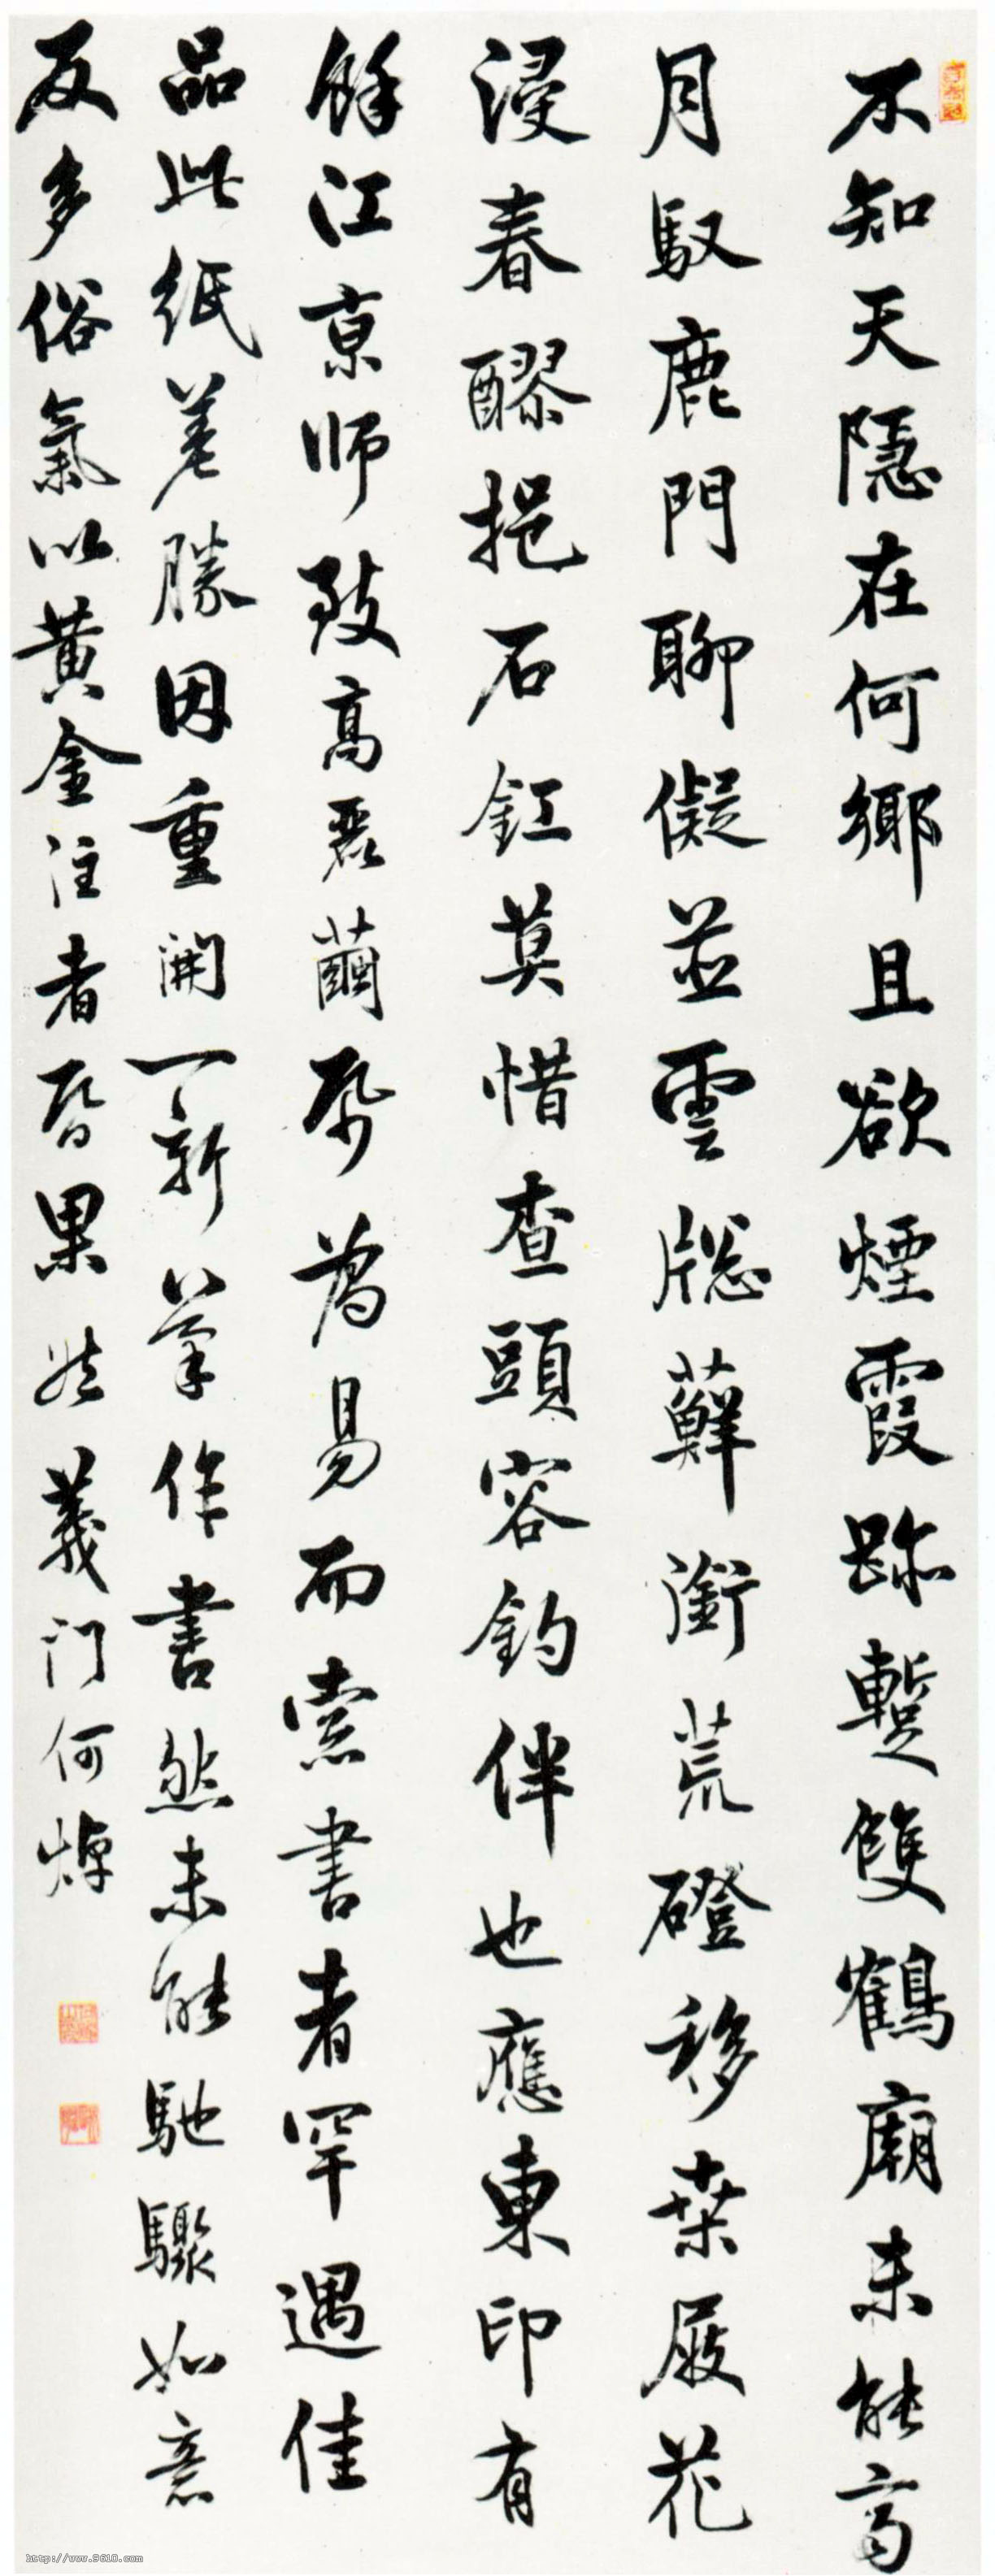 不知天隱在何鄉且欲煙霞跡暫雙鶴廟未能齊
月馭鹿門聊儗並雲牕蘚銜荒磴移桒屐花
浸春醪挹石缸莫惜查頭容釣伴也應東印有
餘江京師致高麗繭帋為易而索書者罕遇佳
品此紙差勝因重開一新筆作書然未能馳驟如意
反多俗氣以黃金注者昏果然義門何焯
http://www.9610.com